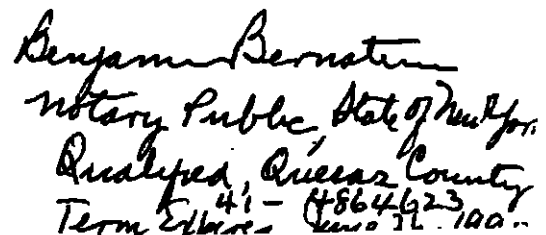 Benjamin Bernstein
Notary Public, State of New York
Qualified, Queens County
41-4864623
Term Expires June